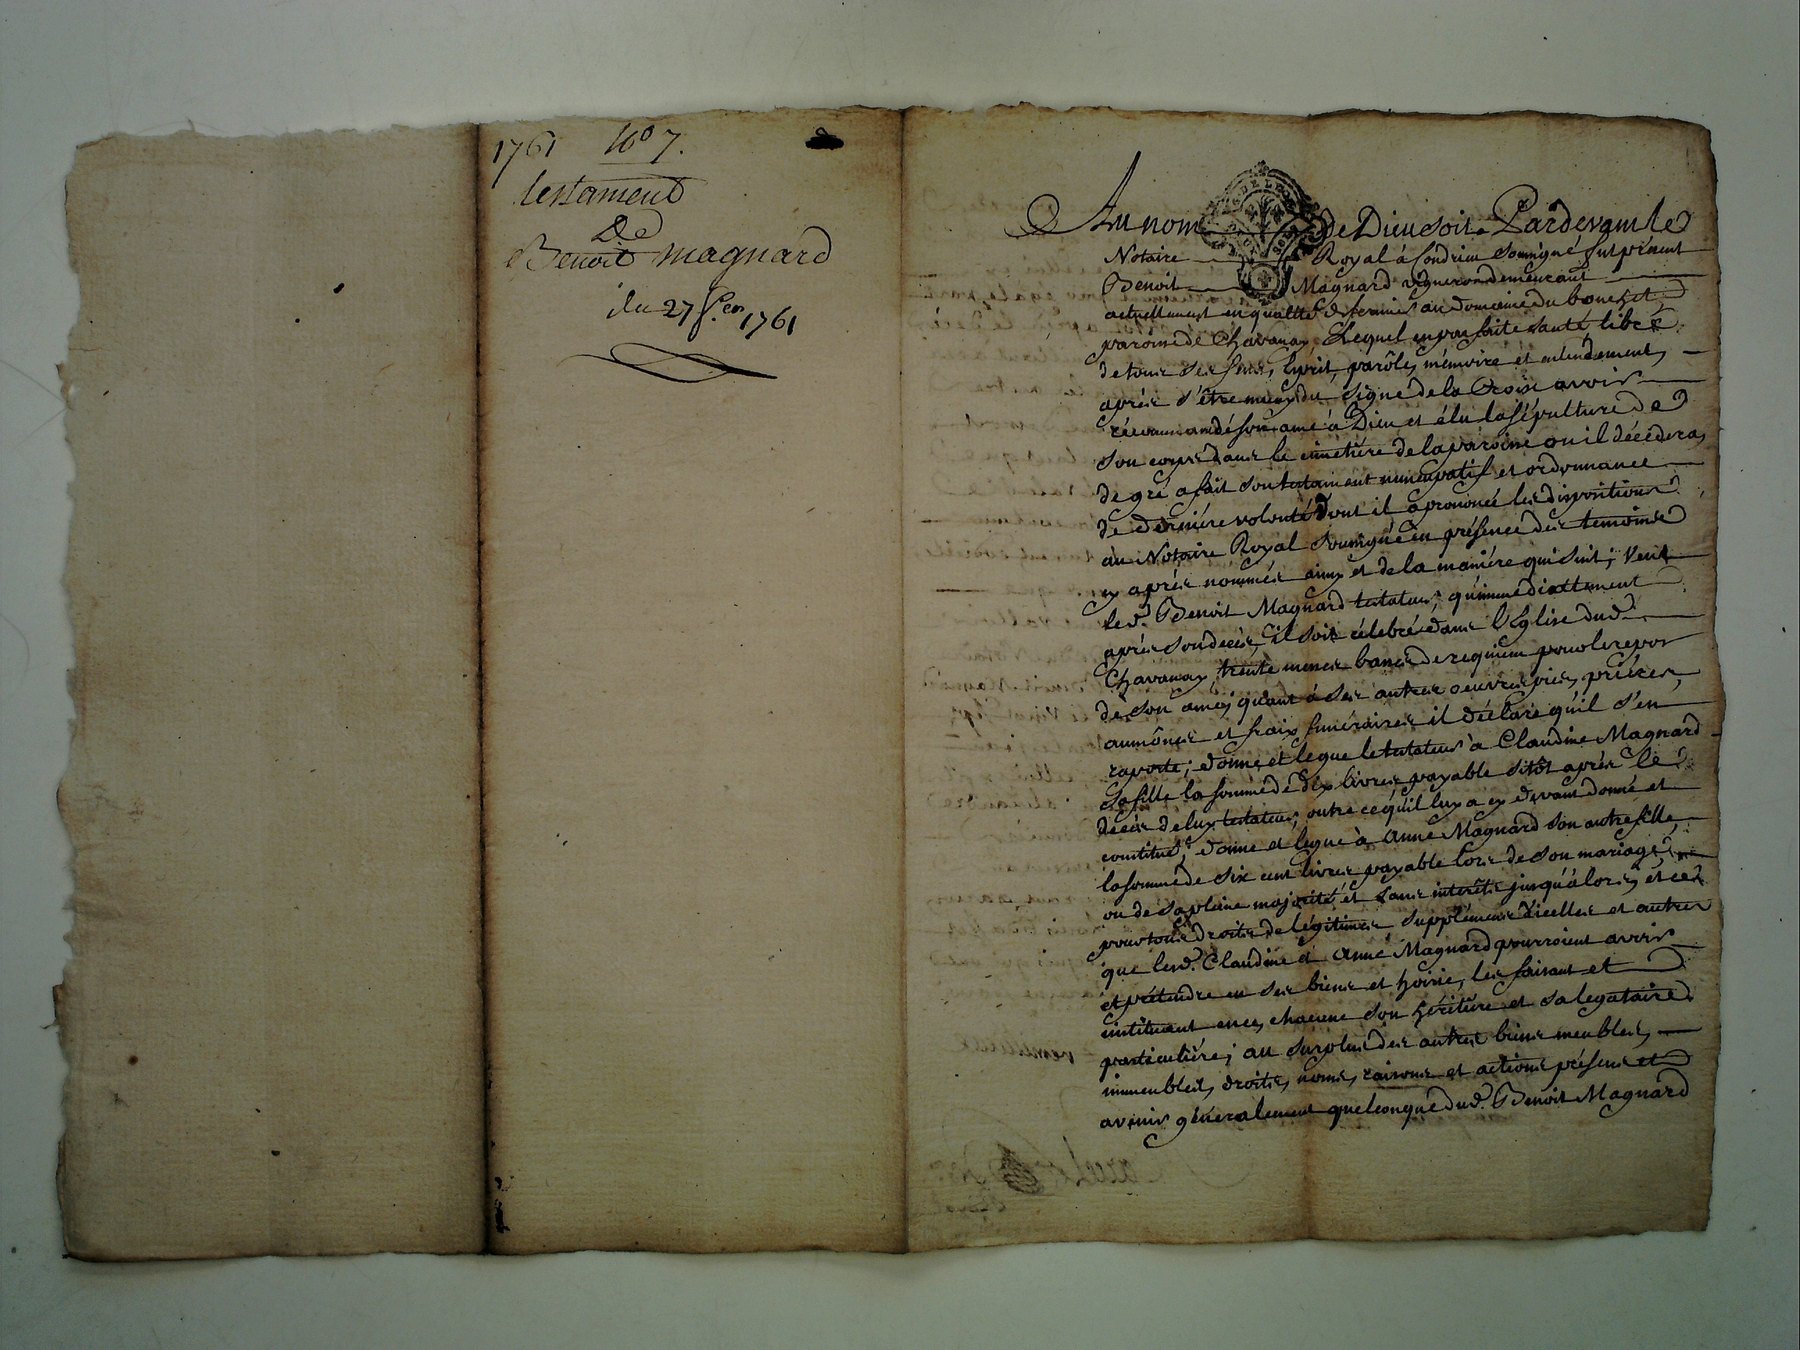 1761 No 7.
testament
De
Benoit Magnard
du 27 1761
Au nom de Dieu soit Pardevant le
Notaire Royal à Condrieu soussigné fut présent
Benoit Magnard vigneron demeurant
actuellement en qualité de fermier au domaine du
paroisse de Chavanay, Lequel en parfaite santé, libre
de tous ses sens, Esprit, parole, mémoire et entendement,
après s'être muny du signe de la Croix avoir
récommandé son ame à Dieu et élu la sépulture de
son corps dans le cimetière de la paroisse ou il décédera,
de gré a fait son testament nuncupatif et ordonnance
de derniere volonté dont il a prononcé les dispositions
au Notaire Royal soussigné en présence des temoins
cy après nommés ainsy et de la manière qui suit; Veut
led. Benoit Magnard testateur, qu'immédiattement
après son decès, il soit célébré dans l'Eglise dud.
Chavanay, trente messes basses de requiem pour le repos
de son ame, quant à ses autres oeuvres pies, prières,
aumônes et fraix funéraires il déclare qu'il s'en
raporte; donne et legue le testateur à Claudine Magnard
sa fille la somme de dix livres payable sitôt après le
decès de luy testateur, outre ce qu'il luy a cy devant donné et
constitué, donne et legue à Anne Magnard son autre fille,
la somme de six cent livres payable lors de son mariage,
ou de sa pleine majorité, et sans interêts jusqu'àlors, et ce
pour tous droits de légitimes, suppléments d'icelles et autres
que lesd. Claudine et Anne Magnard pourroient avoir
et prétendre en ses biens et hoirie, les faisant et
instituant en ce, chacune son héritière et sa legataire
particulière; au surplus des autres biens meubles,
immeubles, droits, noms, raisons et actions présens et
avenir généralement quelconque dud. Benoit Magnard